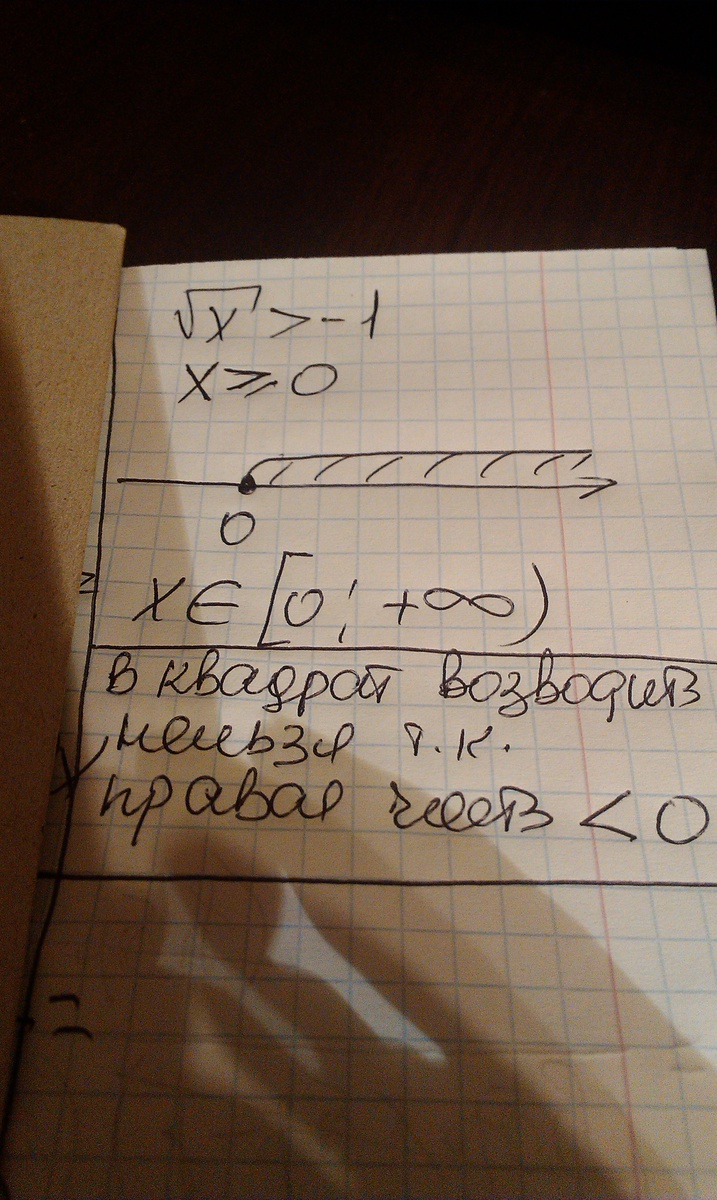 √x > -1
x ⩾ 0
0
x ∈ [0; +∞)
в квадрат возводить
нельзя т.к.
правая часть < 0
=